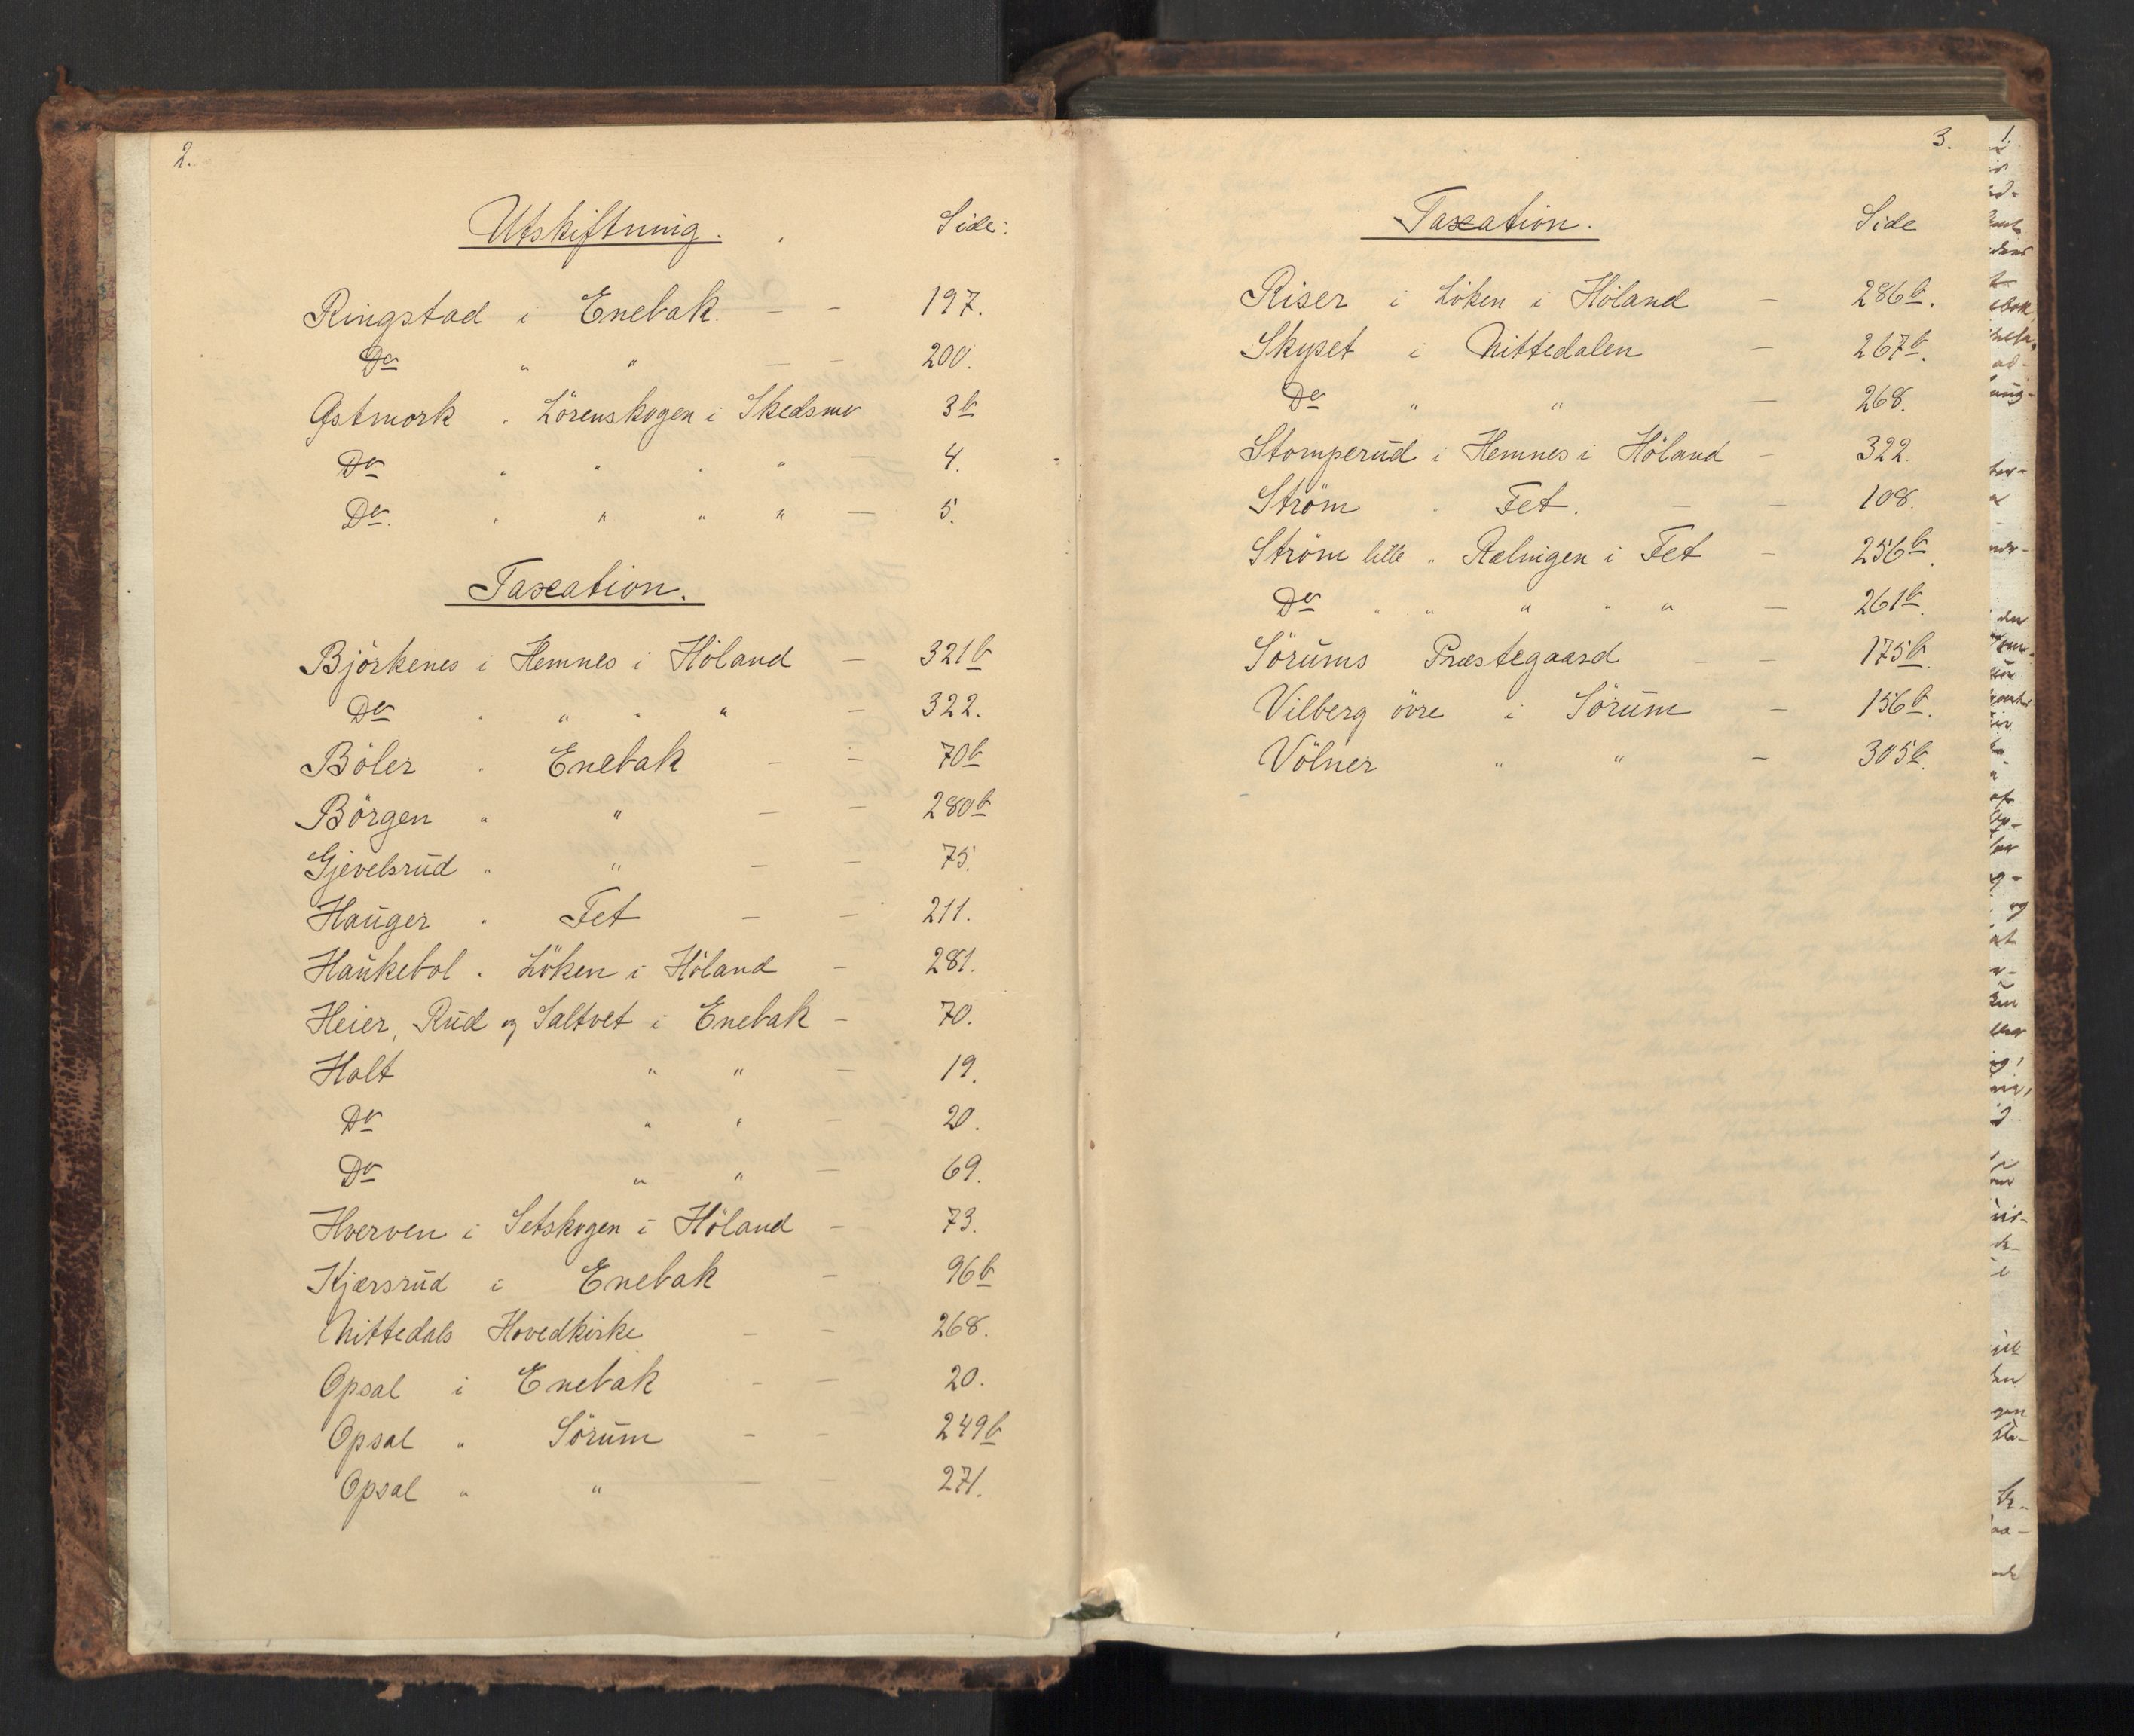 2.
Utskiftning. Side:
Ringstad i Enebak. — — 197.
Do " " — — 200.
Østmork " Lörenskogen i Skedsmo 3b
Do " " " " — 4.
Do. " " " " — 5.
Taxation.
Björkenes i Hemnes i Höland — 321b
Do " " " " — 322.
Böler " Enebak — — 70b
Börgen " " — — 280b
Gjevelsrud " " — — 75.
Hauger " Fet — — 211.
Haukebol " Löken i Höland — 281.
Heier, Rud og Saltvet i Enebak — 70.
Holt " " — 19.
Do " " — 20.
Do " " — 69.
Hverven i Setskogen i Höland — 73.
Kjærsrud i Enebak — 96b
Nittedals Hovedkirke — — 268.
Opsal i Enebak — — 20.
Opsal " Sörum — — 249b
Opsal " " — — 271.
3.
Taxation. Side
Riser i Löken i Höland — 286b.
Skyset i Nittedalen — 267b.
Do " " — 268.
Stomperud i Hemnes i Höland — 322.
Ström " Fet. — — 108.
Ström lille " Rælingen i Fet — 256b.
Do " " " " " — 261b.
Sörums Præstegaard — — 175b.
Vilberg övre i Sörum — 156b.
Völner " " — 305b.